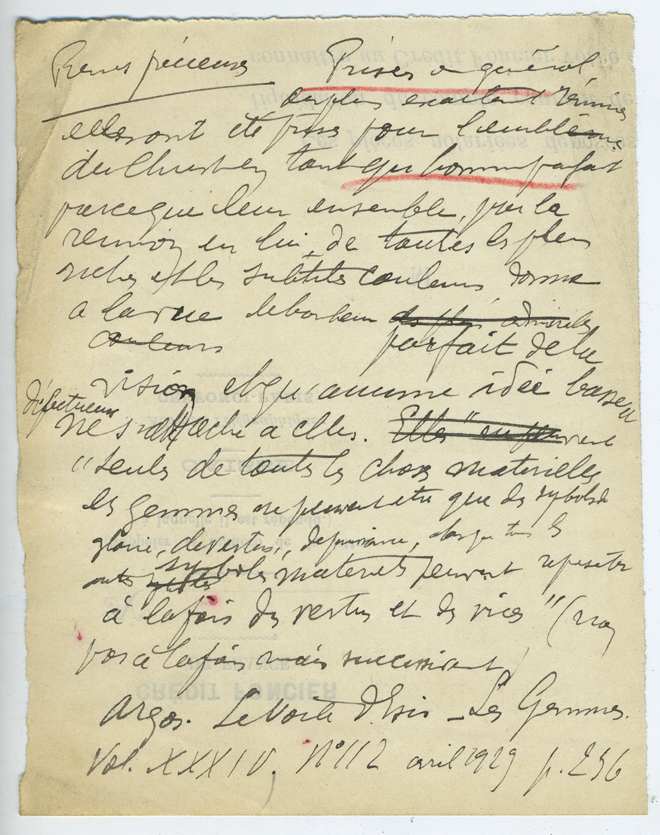 Pierres précieuses Prises en général
des plus excellents
elles ont été prises pour l'emblème
du Christ en tant que homme parfait
parce que leur ensemble, par la
réunion en lui, de toutes les plus
riches et les subtiles couleurs donne
a la vue le bonheur des plus admirables
couleurs parfait de la
vision et qu'aucune idée basse ou
défectueuse
ne s'attache à elles. Elles
"seules de toutes les choses matérielles,
les gemmes ne peuvent être que des symboles de
gloire, de vertus, de puissance, lorsque tous les
autres symboles matériels peuvent représenter
à la fois des vertus et des vices" (non
pas à la fois mais successivement)
Argos. Le Voile d'Isis - Les Gemmes.
Vol. XXXIV. N° 112 avril 1929 p. 256
CRÉDIT FONCIER